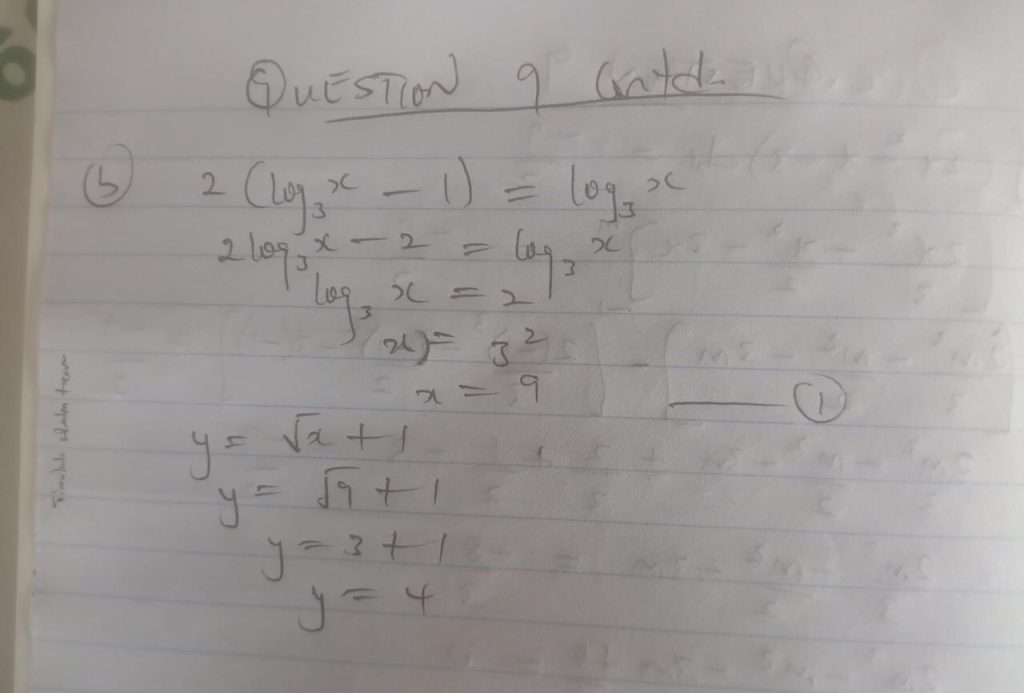 QUESTION 9 Contd
(b) 2 (log₃x − 1) = log₃x
2 log₃x − 2 = log₃x
log₃x = 2
x = 3²
x = 9 ——— (1)
y = √x + 1
y = √9 + 1
y = 3 + 1
y = 4